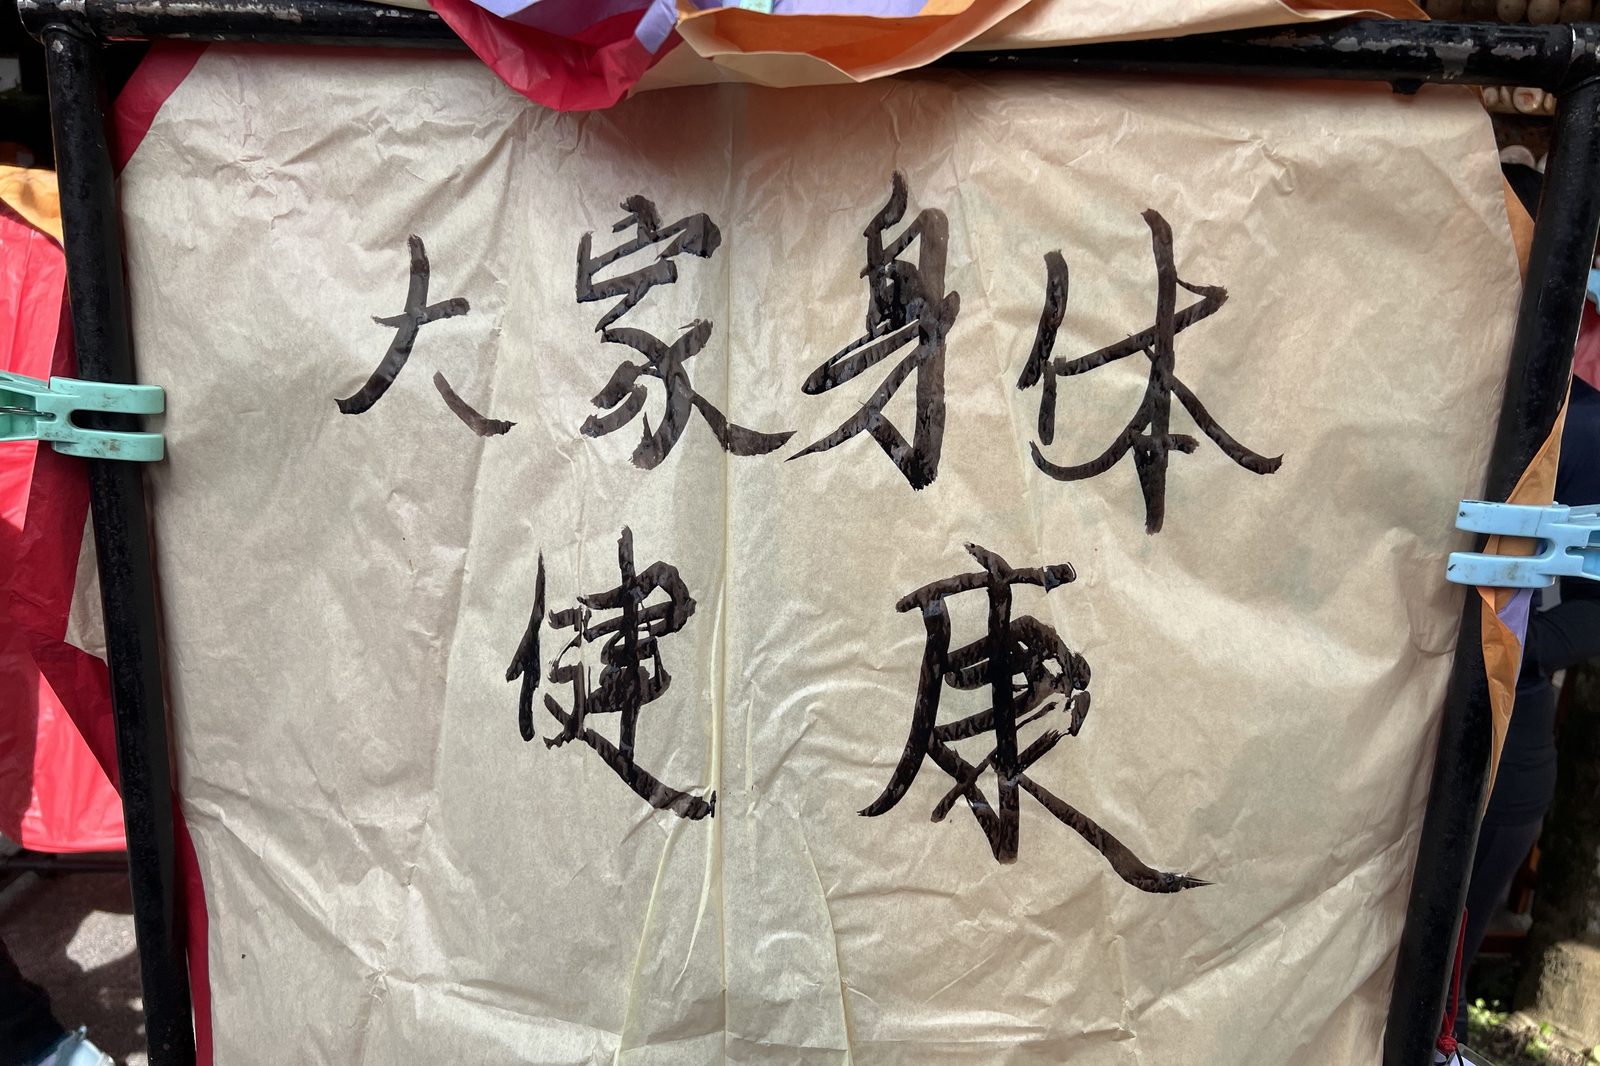 大家身体
健康